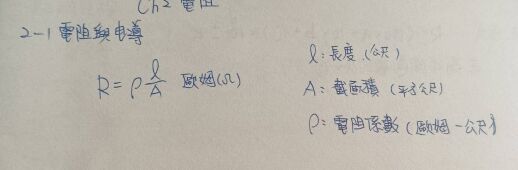 Ch2 電阻
2-1 電阻與电導
R = ρ l/A 歐姆(Ω)
l: 長度 (公尺)
A: 截面積 (平方公尺)
ρ: 電阻係數 (歐姆-公尺)